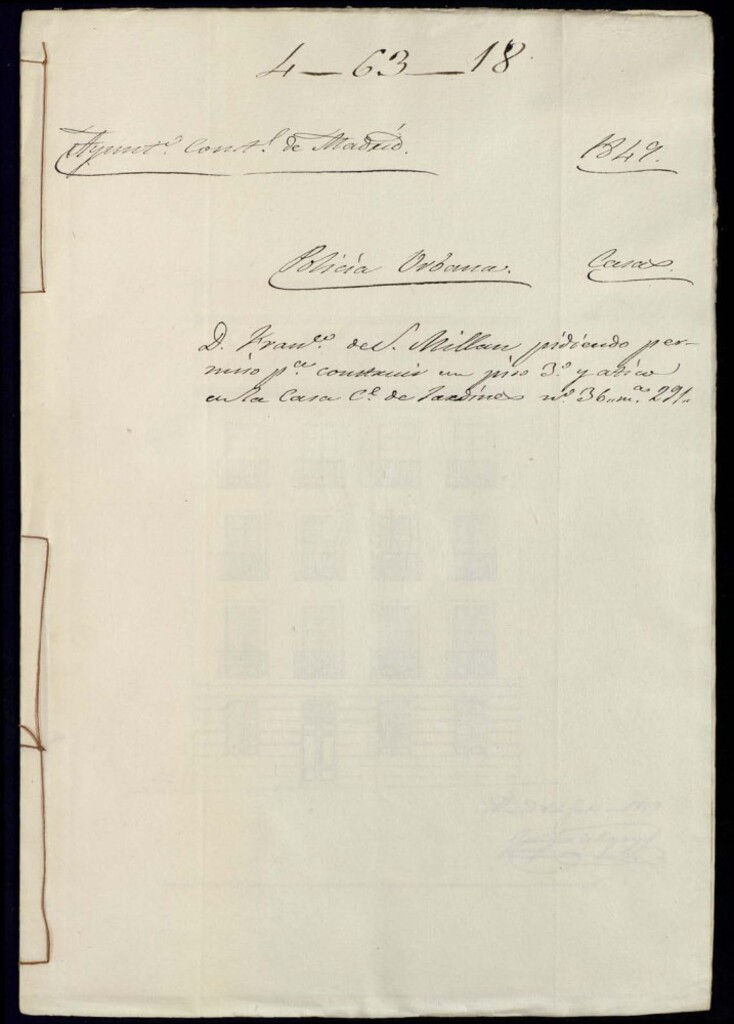 4—63—18
Ayunt.º Const.l de Madrid.
1849.
Policía Urbana.
Casas
D. Fran.co de S. Millan pidiendo per-
miso p.a construir un piso 3.º y atico
en la Casa C.e de Jardines n.º 36 m.a 291.